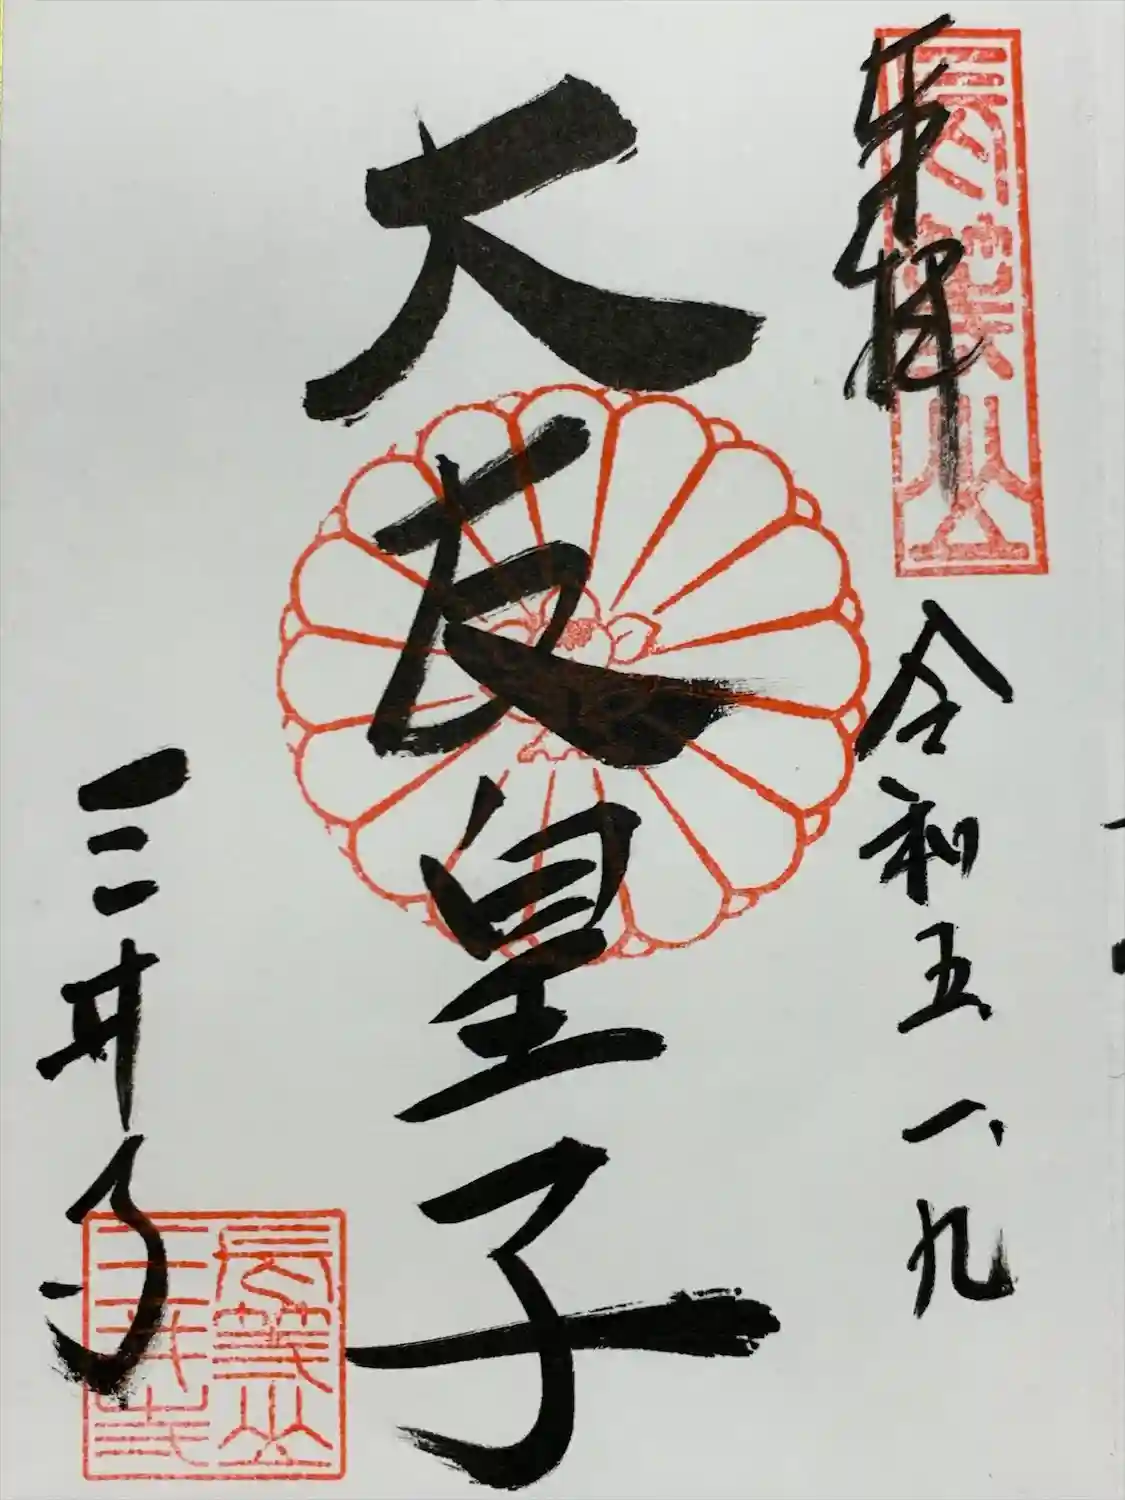 奉拝
長等山
令和五、一、九
大友皇子
三井寺
長等山
三井寺